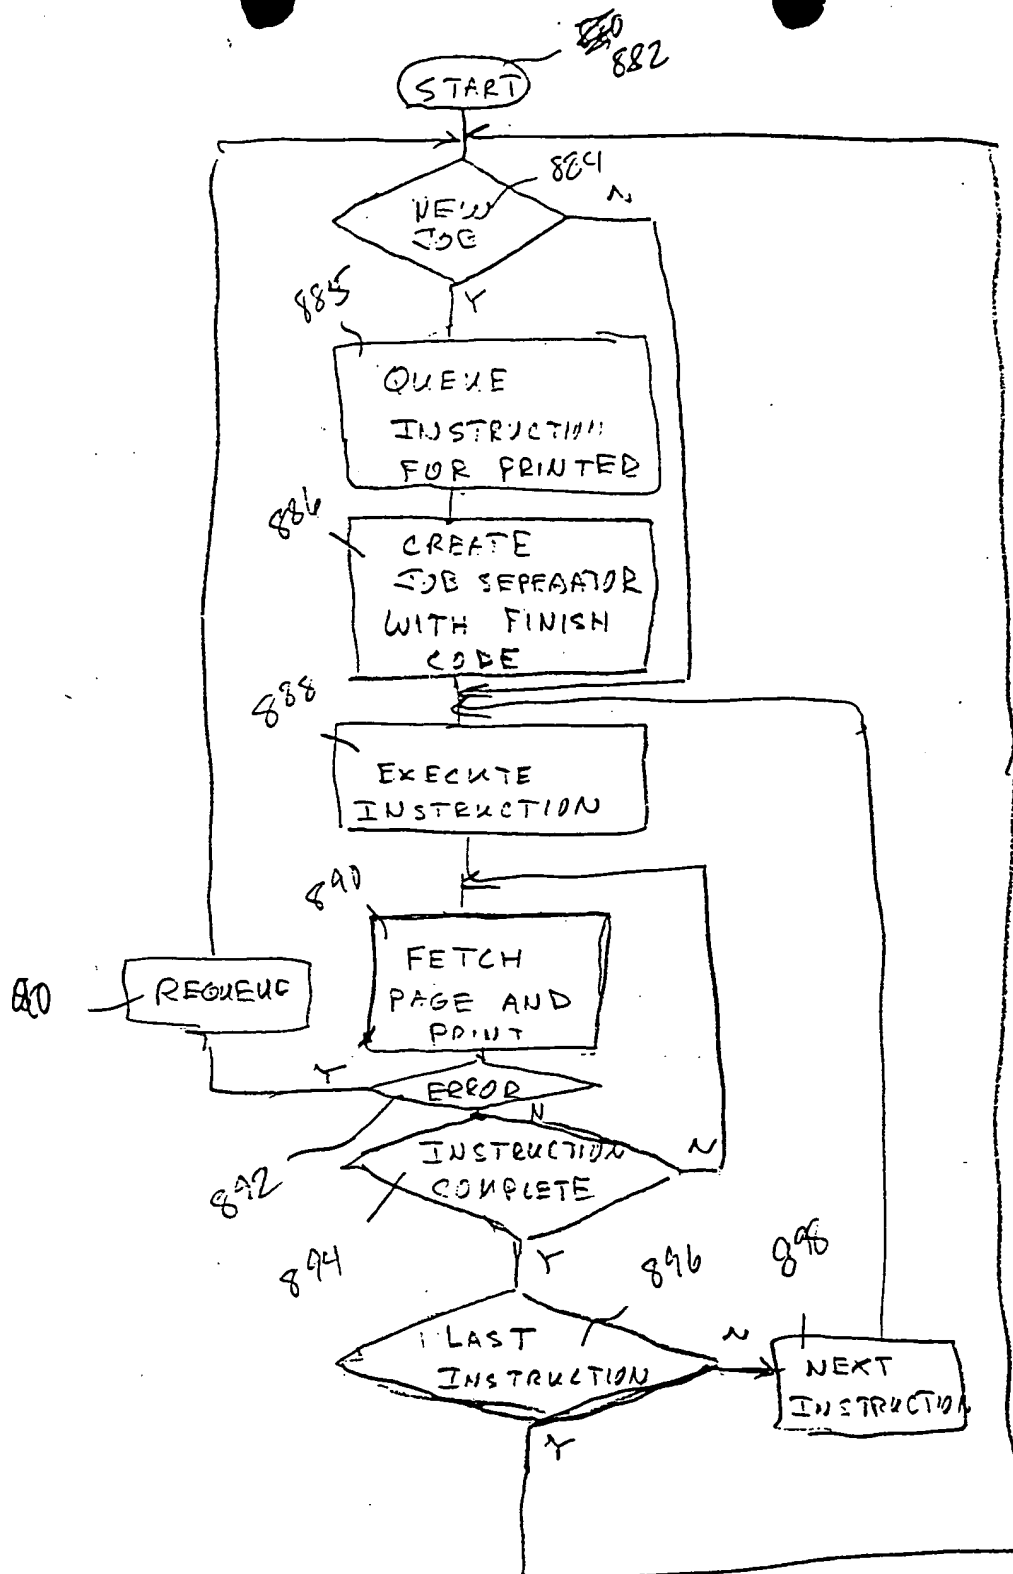 882
START
884
N
NEW
JOB
Y
885
QUEUE
INSTRUCTION
FOR PRINTED
886
CREATE
JOB SEPERATOR
WITH FINISH
CODE
888
EXECUTE
INSTRUCTION
890
FETCH
PAGE AND
PRINT
REQUEUE
Y
ERROR
N
892
INSTRUCTION
COMPLETE
N
Y
894
896
898
LAST
INSTRUCTION
N
NEXT
INSTRUCTION
Y